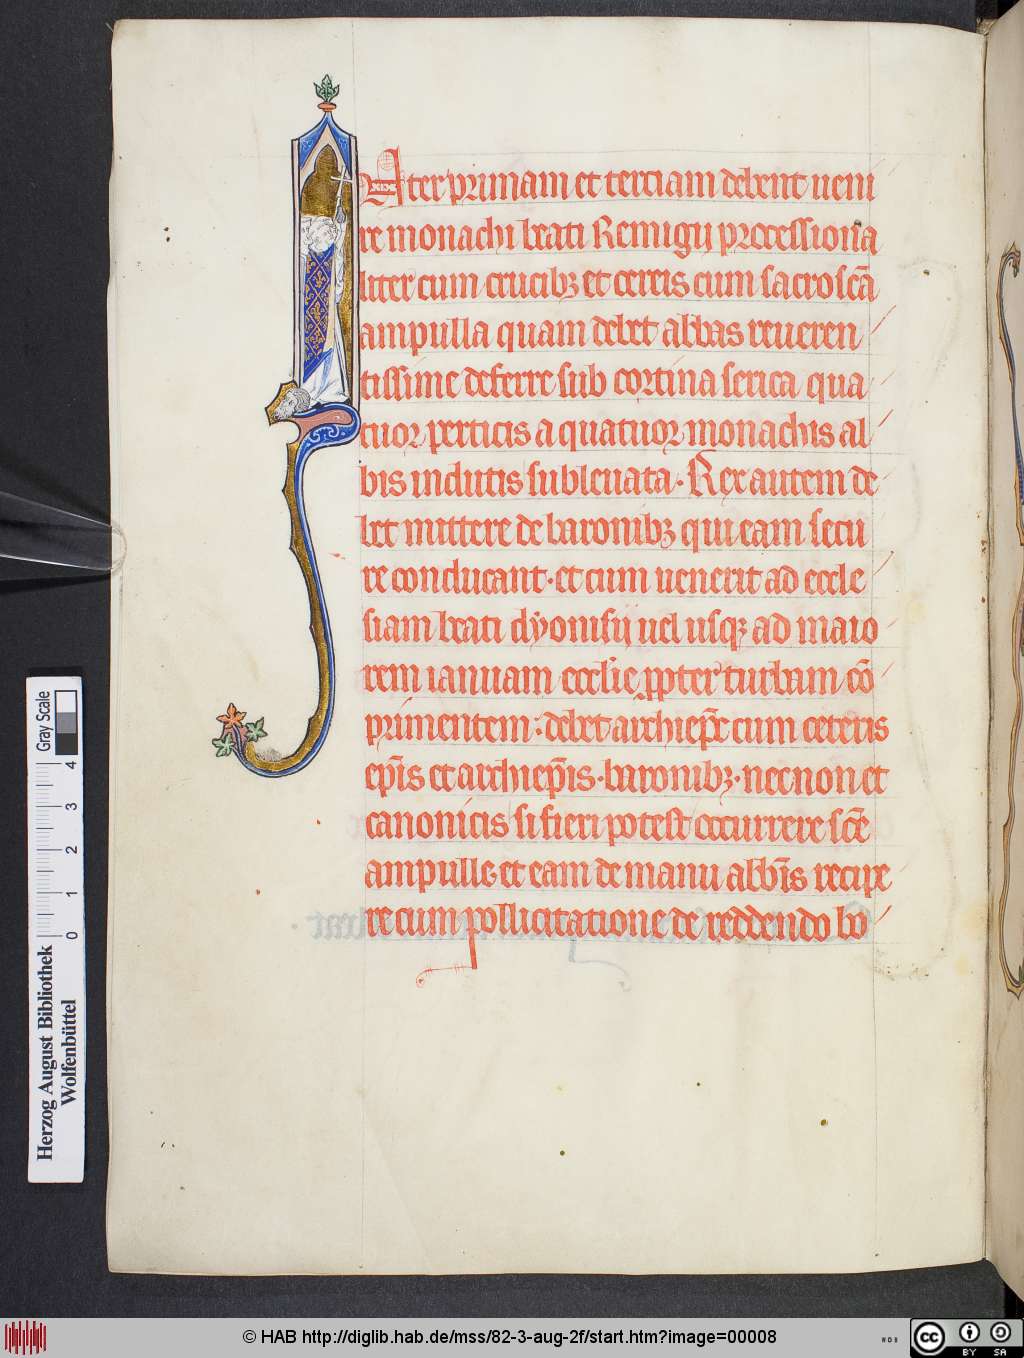 Nter primam et terciam debent ueni
re monachi beati Remigij processiona
liter cum crucibꝫ et cereis cum sacrosc̄a
ampulla quam debet abbas reueren
tissime deferre sub cortina serica qua
tuor perticis a quatuor monachis al
bis indutis subleuata. Rex autem de
bet mittere de baronibꝫ qui eam secu
re conducant. et cum uenerit ad eccle
siam beati dyonisij uel usqꝫ ad maio
rem ianuam eccl̄ie ꝓpter turbam cō
primentem: debet archiep̄c cum ceteris
ep̄is et archiep̄is. baronibꝫ. necnon et
canonicis si fieri potest occurrere sc̄e
ampulle. et eam de manu abb̄is recipe
re cum pollicitatione de reddendo bo
Gray Scale
4
3
2
1
0
Herzog August Bibliothek
Wolfenbüttel
© HAB http://diglib.hab.de/mss/82-3-aug-2f/start.htm?image=00008
WDB
cc
BY SA